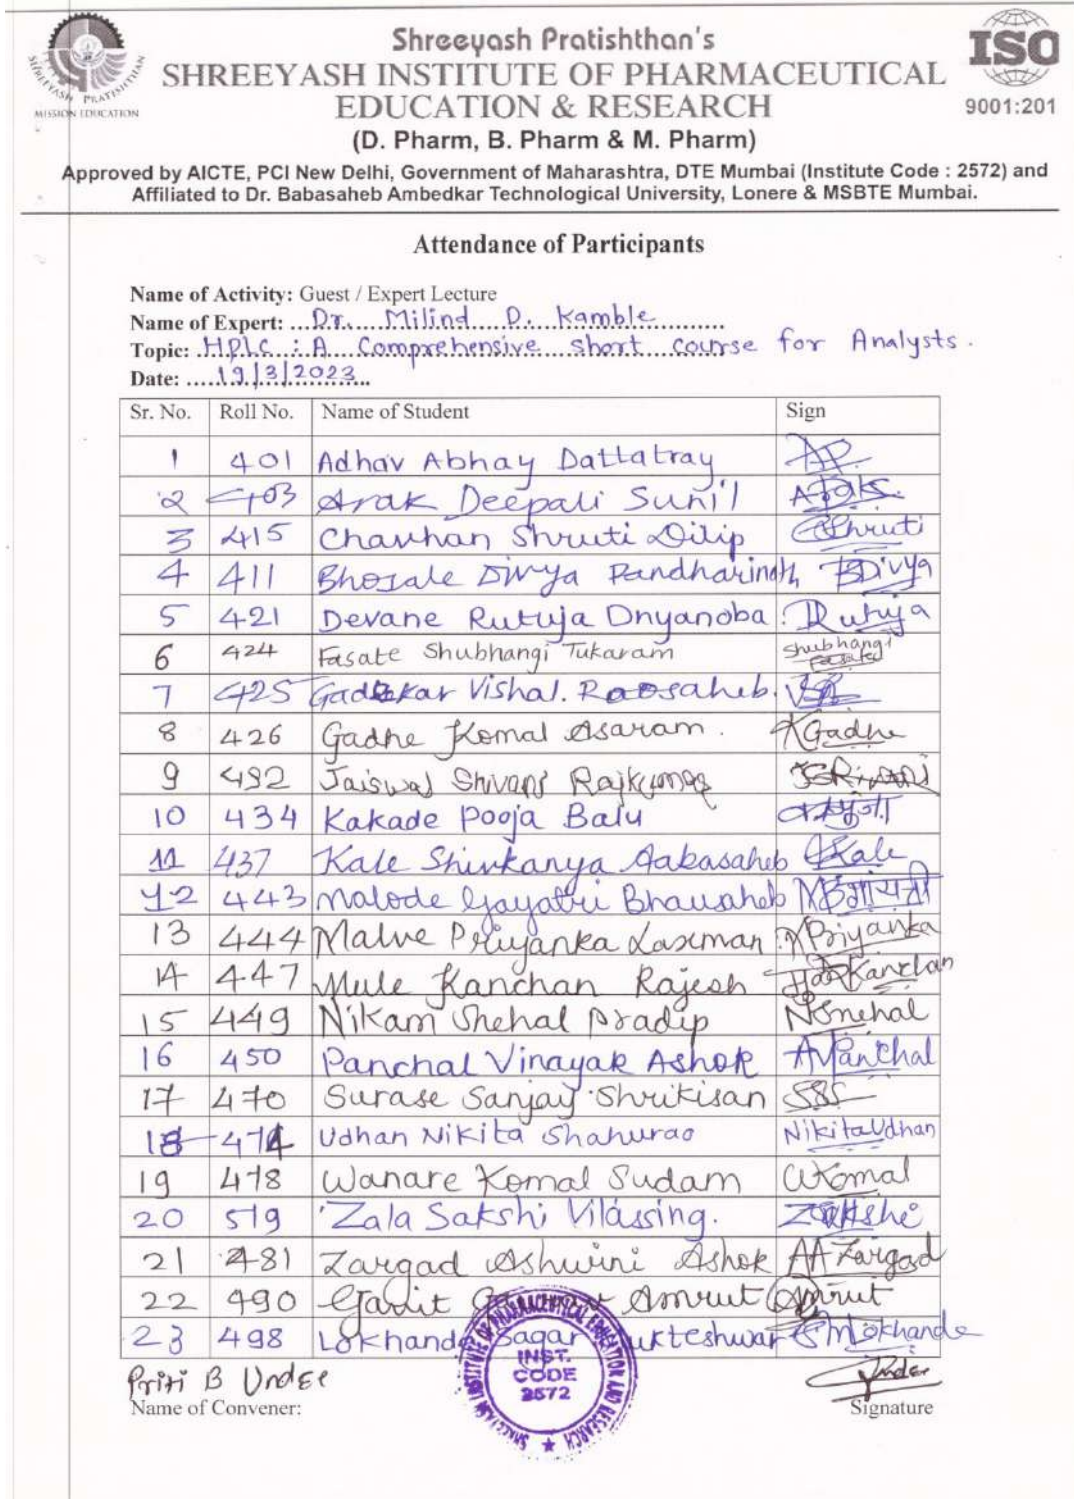 Shreeyash Pratishthan's
SHREEYASH INSTITUTE OF PHARMACEUTICAL
EDUCATION & RESEARCH
(D. Pharm, B. Pharm & M. Pharm)
Approved by AICTE, PCI New Delhi, Government of Maharashtra, DTE Mumbai (Institute Code : 2572) and
Affiliated to Dr. Babasaheb Ambedkar Technological University, Lonere & MSBTE Mumbai.
SHREEYASH PRATISHTHAN
MISSION EDUCATION
ISO
9001:201
Attendance of Participants
Name of Activity: Guest / Expert Lecture
Name of Expert: ...Dr. Milind D. Kamble
Topic: HPLC : A Comprehensive short course for Analysts.
Date: 19/3/2023
Sr. No. Roll No. Name of Student Sign
1 401 Adhav Abhay Dattatray
2 403 Arak Deepali Sunil
3 415 Chavhan Shruti Dilip Shruti
4 411 Bhosale Divya Pandharinath BDivya
5 421 Devane Rutuja Dnyanoba Rutuja
6 424 Fasate Shubhangi Tukaram Shubhangi Fasate
7 425 Gadekar Vishal. Raosaheb.
8 426 Gadhe Komal Asaram. KGadhe
9 492 Jaiswal Shivani Rajkumar
10 434 Kakade Pooja Balu
11 437 Kale Shivkanya Aabasaheb Kale
12 443 Malode Gayatri Bhausaheb
13 444 Malve Priyanka Laxman Priyanka
14 447 Mule Kanchan Rajesh Kanchan
15 449 Nikam Snehal Pradip NSnehal
16 450 Panchal Vinayak Ashok AVPanchal
17 470 Surase Sanjay Shrikisan SSS
18 474 Udhan Nikita Shahurao NikitaUdhan
19 478 Wanare Komal Sudam WKomal
20 519 Zala Sakshi Vilassing.
21 481 Zargad Ashwini Ashok AAZargad
22 490 Gavit Amrut Amrut
23 498 Lokhande Sagar ukteshwar Lokhande
Priti B Undre
Name of Convener:
Undre
Signature
SHREEYASH INSTITUTE OF PHARMACEUTICAL EDUCATION AND RESEARCH
INST.
CODE
2572